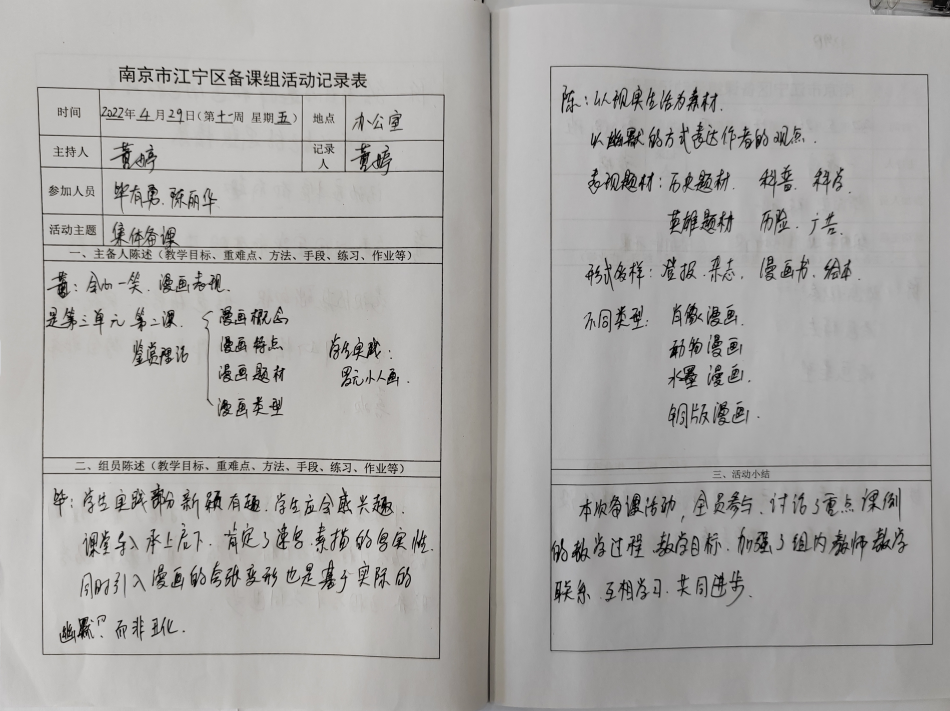 南京市江宁区备课组活动记录表
时间 2022年4月29日(第十一周 星期五) 地点 办公室
主持人 黄婷 记录人 黄婷
参加人员 毕有勇、陈丽华
活动主题 集体备课
一、主备人陈述(教学目标、重难点、方法、手段、练习、作业等)
黄:会心一笑、漫画表现
是第三单元 第二课.
鉴赏理论
漫画概念
漫画特点
漫画题材
漫画类型
学生实践:
单元小人画.
二、组员陈述(教学目标、重难点、方法、手段、练习、作业等)
毕:学生实践部分新颖有趣.学生应会感兴趣.
课堂导入承上启下.肯定了速写.素描的写实性.
同时引入漫画的夸张变形也是基于实际的
幽默.而非丑化.
陈:以现实生活为素材.
以幽默的方式表达作者的观点.
表现题材:历史题材. 科普. 科学.
英雄题材 历险. 广告.
形式多样:登报.杂志. 漫画书.绘本.
不同类型: 肖像漫画.
动物漫画
水墨漫画.
铜版漫画.
三、活动小结
本次备课活动,全员参与.讨论了重点课例
的教学过程.教学目标.加强了组内教师教学
联系.互相学习.共同进步.